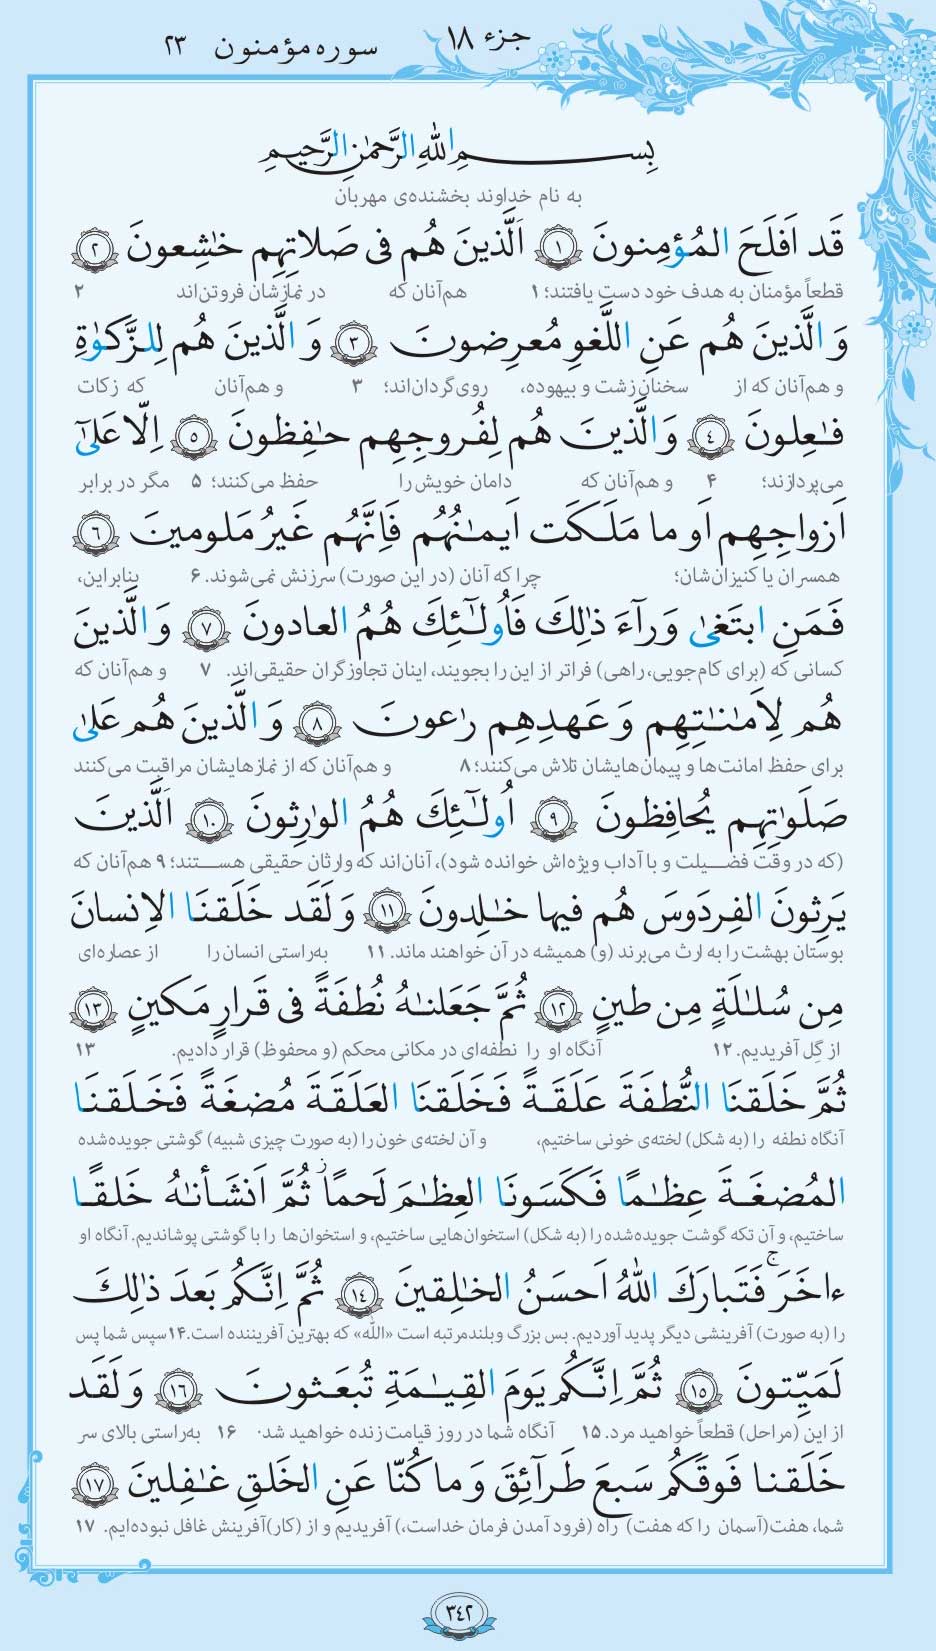 جزء ۱۸ سوره مؤمنون ۲۳
بِسمِ اللهِ الرَّحمٰنِ الرَّحیمِ
به نام خداوند بخشنده‌ی مهربان
قَد اَفلَحَ المُؤمِنونَ ﴿۱﴾ اَلَّذینَ هُم فی صَلاتِهِم خٰشِعونَ ﴿۲﴾
قطعاً مؤمنان به هدف خود دست یافتند؛ ۱ هم‌آنان که در نمازشان فروتن‌اند ۲
وَ الَّذینَ هُم عَنِ اللَّغوِ مُعرِضونَ ﴿۳﴾ وَ الَّذینَ هُم لِلزَّکوٰةِ
و هم‌آنان که از سخنان زشت و بیهوده، روی‌گردان‌اند؛ ۳ و هم‌آنان که زکات
فٰعِلونَ ﴿۴﴾ وَ الَّذینَ هُم لِفُروجِهِم حٰفِظونَ ﴿۵﴾ اِلّا عَلیٰٓ
می‌پردازند؛ ۴ و هم‌آنان که دامان خویش را حفظ می‌کنند؛ ۵ مگر در برابر
اَزواجِهِم اَو ما مَلَکَت اَیمٰنُهُم فَاِنَّهُم غَیرُ مَلومینَ ﴿۶﴾
همسران یا کنیزان‌شان؛ چرا که آنان (در این صورت) سرزنش نمی‌شوند. ۶ بنابراین،
فَمَنِ ابتَغیٰ وَرآءَ ذٰلِکَ فَاُولٰٓئِکَ هُمُ العادونَ ﴿۷﴾ وَ الَّذینَ
کسانی که (برای کام‌جویی، راهی) فراتر از این را بجویند، اینان تجاوزگران حقیقی‌اند. ۷ و هم‌آنان که
هُم لِاَمٰنٰتِهِم وَ عَهدِهِم رٰعونَ ﴿۸﴾ وَ الَّذینَ هُم عَلیٰ
برای حفظ امانت‌ها و پیمان‌هایشان تلاش می‌کنند؛ ۸ و هم‌آنان که از نمازهایشان مراقبت می‌کنند
صَلَوٰتِهِم یُحافِظونَ ﴿۹﴾ اُولٰٓئِکَ هُمُ الوٰرِثونَ ﴿۱۰﴾ اَلَّذینَ
(که در وقت فضیلت و با آداب ویژه‌اش خوانده شود)، آنان‌اند که وارثان حقیقی هستند؛ ۹ هم‌آنان که
یَرِثونَ الفِردَوسَ هُم فیها خٰلِدونَ ﴿۱۱﴾ وَ لَقَد خَلَقنَا الاِنسانَ
بوستان بهشت را به ارث می‌برند (و) همیشه در آن خواهند ماند. ۱۱ به‌راستی انسان را از عصاره‌ای
مِن سُلٰلَةٍ مِن طینٍ ﴿۱۲﴾ ثُمَّ جَعَلنٰهُ نُطفَةً فی قَرارٍ مَکینٍ ﴿۱۳﴾
از گِل آفریدیم. ۱۲ آنگاه او را نطفه‌ای در مکانی محکم (و محفوظ) قرار دادیم. ۱۳
ثُمَّ خَلَقنَا النُّطفَةَ عَلَقَةً فَخَلَقنَا العَلَقَةَ مُضغَةً فَخَلَقنَا
آنگاه نطفه را (به شکل) لخته‌ی خونی ساختیم، و آن لخته‌ی خون را (به صورت چیزی شبیه) گوشتی جویده‌شده
المُضغَةَ عِظٰمًا فَکَسَونَا العِظٰمَ لَحمًا ز ثُمَّ اَنشَأنٰهُ خَلقًا
ساختیم، و آن تکه گوشت جویده‌شده را (به شکل) استخوان‌هایی ساختیم، و استخوان‌ها را با گوشتی پوشاندیم. آنگاه او
ءاخَرَ ج فَتَبارَکَ اللهُ اَحسَنُ الخٰلِقینَ ﴿۱۴﴾ ثُمَّ اِنَّکُم بَعدَ ذٰلِکَ
را (به صورت) آفرینشی دیگر پدید آوردیم. بس بزرگ و بلندمرتبه است «الله» که بهترین آفریننده است. ۱۴ سپس شما پس
لَمَیِّتونَ ﴿۱۵﴾ ثُمَّ اِنَّکُم یَومَ القِیٰمَةِ تُبعَثونَ ﴿۱۶﴾ وَ لَقَد
از این (مراحل) قطعاً خواهید مرد. ۱۵ آنگاه شما در روز قیامت زنده خواهید شد. ۱۶ به‌راستی بالای سر
خَلَقنا فَوقَکُم سَبعَ طَرآئِقَ وَ ما کُنّا عَنِ الخَلقِ غٰفِلینَ ﴿۱۷﴾
شما، هفت (آسمان را که هفت) راه (فرود آمدن فرمان خداست،) آفریدیم و از (کار) آفرینش غافل نبوده‌ایم. ۱۷
۳۴۲